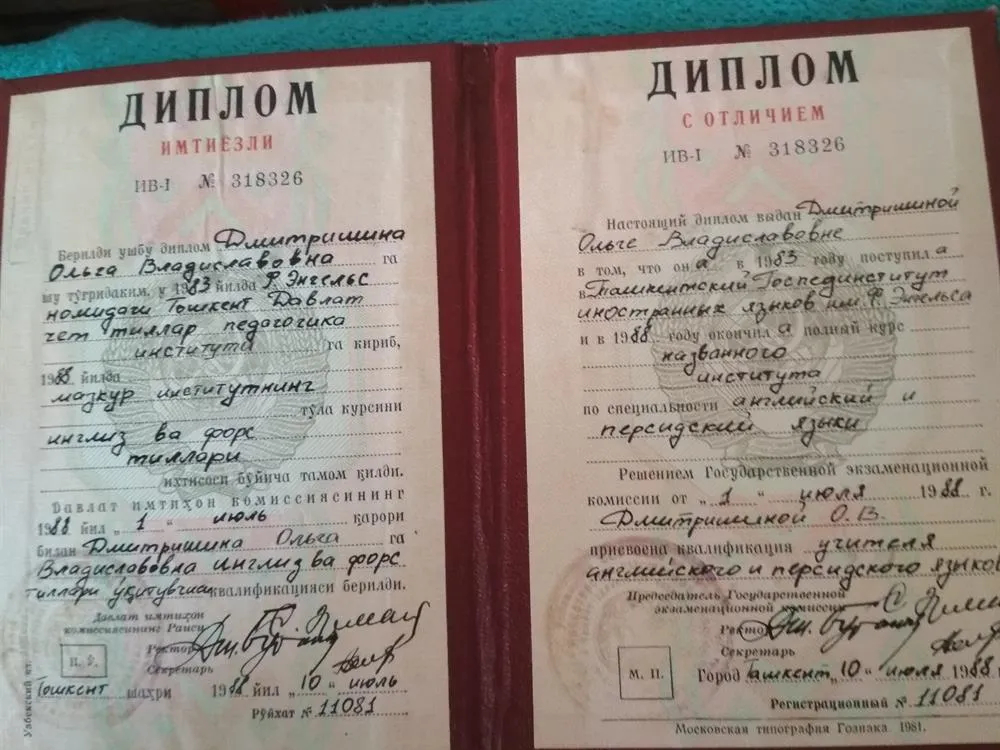 ДИПЛОМ
ИМТИЁЗЛИ
ИВ-I № 318326
Берилди ушбу диплом Дмитришина
Ольга Владиславовна га
шу тўғридаким, у 1983 йилда Ф. Энгельс
номидаги Тошкент Давлат
чет тиллар педагогика
института га кириб,
1988 йилда
мазкур институтнинг
тўла курсини
инглиз ва форс
тиллари
ихтисоси бўйича тамом қилди.
Давлат имтиҳон комиссиясининг
1988 йил „ 1 “ июль қарори
билан Дмитришина Ольга га
Владиславовна инглиз ва форс
тиллари ўқитувчиси квалификацияси берилди.
Давлат имтиҳон
комиссиясининг Раиси
Ректор
Секретарь
Тошкент шаҳри 1988 йил „ 10 “ июль
Рўйхат № 11081
Узбекский
ДИПЛОМ
С ОТЛИЧИЕМ
ИВ-I № 318326
Настоящий диплом выдан Дмитришиной
Ольге Владиславовне
в том, что она в 1983 году поступила
в Ташкентский Госпединститут
иностранных языков им. Ф. Энгельса
и в 1988 году окончила полный курс
названного
института
по специальности английский и
персидский языки
Решением Государственной экзаменационной
комиссии от „ 1 “ июля 1988 г.
Дмитришиной О. В.
присвоена квалификация учителя
английского и персидского языков
Председатель Государственной
экзаменационной комиссии
Ректор
Секретарь
М. П.
Город Ташкент, 10 “ июля 1988
Регистрационный № 11081
Московская типография Гознака 1981.